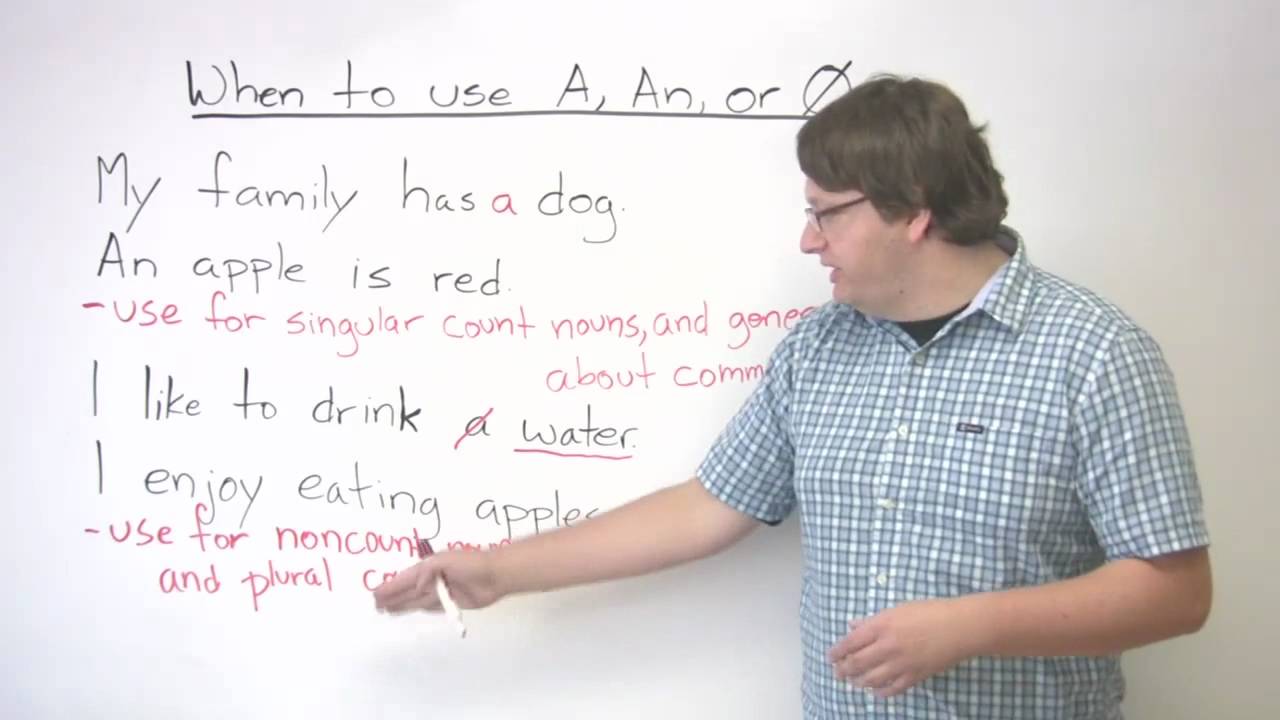 When to use A, An, or Ø
My family has a dog.
An apple is red.
- use for singular count nouns, and
about
I like to drink a water.
I enjoy eating apples
- use for noncount
and plural